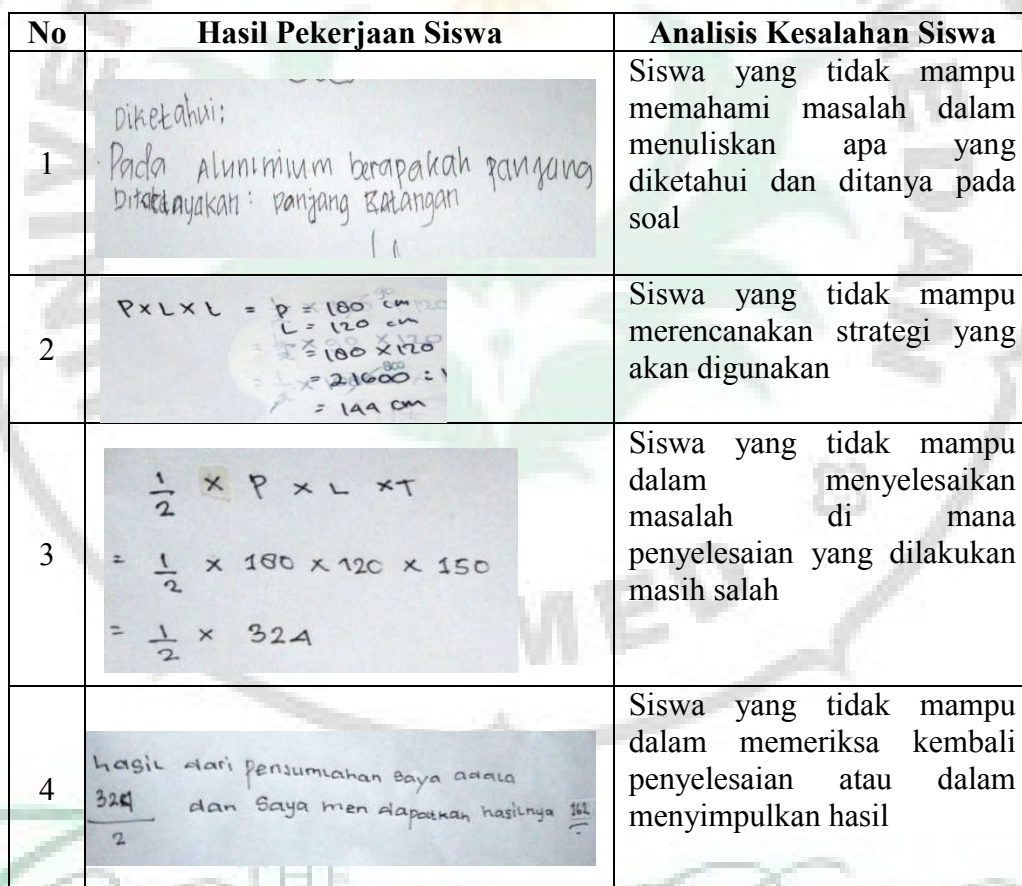 No
Hasil Pekerjaan Siswa
Analisis Kesalahan Siswa
1
Diketahui:
Pada Aluminium berapakah panjang
Ditanyakan: panjang Batangan
Siswa yang tidak mampu
memahami masalah dalam
menuliskan apa yang
diketahui dan ditanya pada
soal
2
P x L x L = P = 180 cm
L = 120 cm
= 180 x 120
= 21600 :
= 144 cm
Siswa yang tidak mampu
merencanakan strategi yang
akan digunakan
3
1/2 x P x L x T
= 1/2 x 180 x 120 x 150
= 1/2 x 324
Siswa yang tidak mampu
dalam menyelesaikan
masalah di mana
penyelesaian yang dilakukan
masih salah
4
hasil dari pensumlahan saya adala
324/2 dan saya mendapatkan hasilnya 162
Siswa yang tidak mampu
dalam memeriksa kembali
penyelesaian atau dalam
menyimpulkan hasil